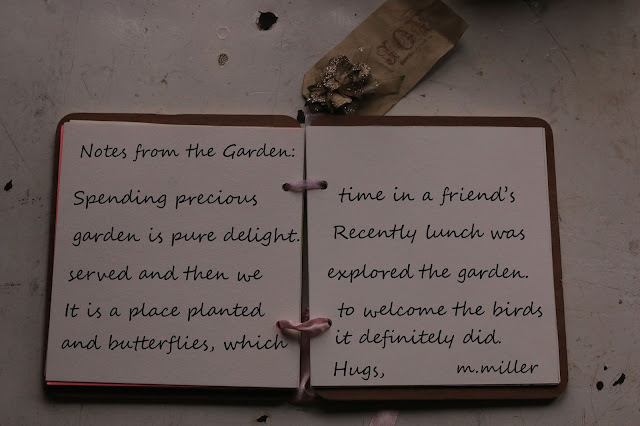 Notes from the Garden:
Spending precious time in a friend's
garden is pure delight. Recently lunch was
served and then we explored the garden.
It is a place planted to welcome the birds
and butterflies, which it definitely did.
Hugs, m.miller